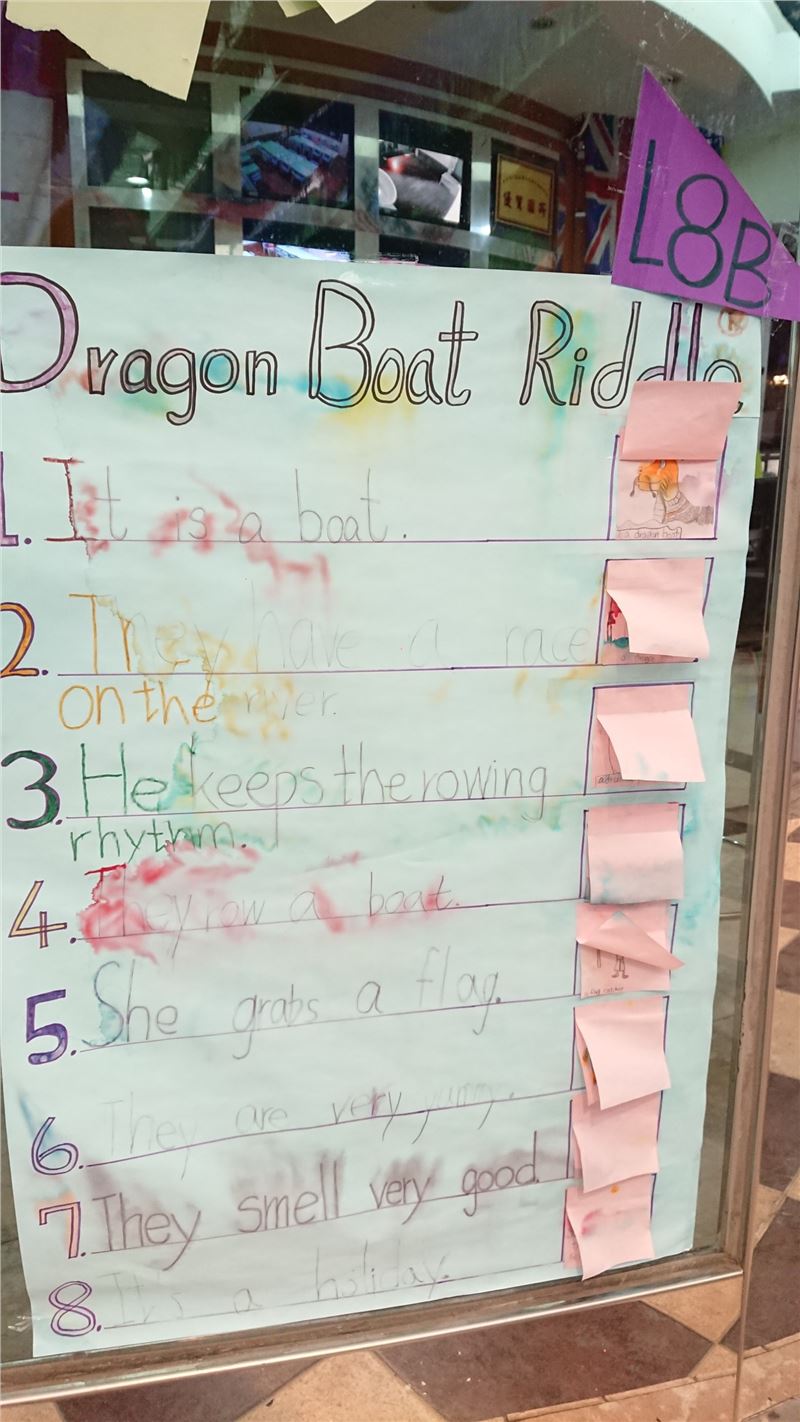 L8B
Dragon Boat Riddle
1. It is a boat.
a dragon boat
2. They have a race
on the river.
3. He keeps the rowing
rhythm.
4. They row a boat.
5. She grabs a flag.
6. They are very yummy.
7. They smell very good.
8. It's a holiday.